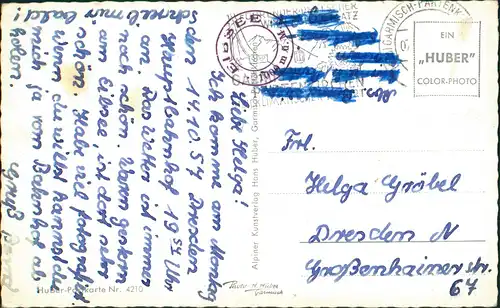 liebe Helga!
Ich komme am Montag
den 14.10.57 Dresden
Hauptbahnhof 19 54 Uhr
an. Das Wetter ist immer
noch schön. Waren gestern
am Eibsee, ist dort sehr
schön. Habe viel fotografiert
Wenn du willst kannst du
mich ja vom Bahnhof ab
holen.
Schreib mir bald!
Gruß
EIBSEE
GARMISCH-PARTENK
EIN
„HUBER"
COLOR-PHOTO
Frl.
Helga Gröbel
Dresden N
Großenhainer str.
67
Alpiner Kunstverlag Hans Huber, Garmisch-Pa
Huber-Postkarte Nr. 4210
Photo H. Huber
Garmisch